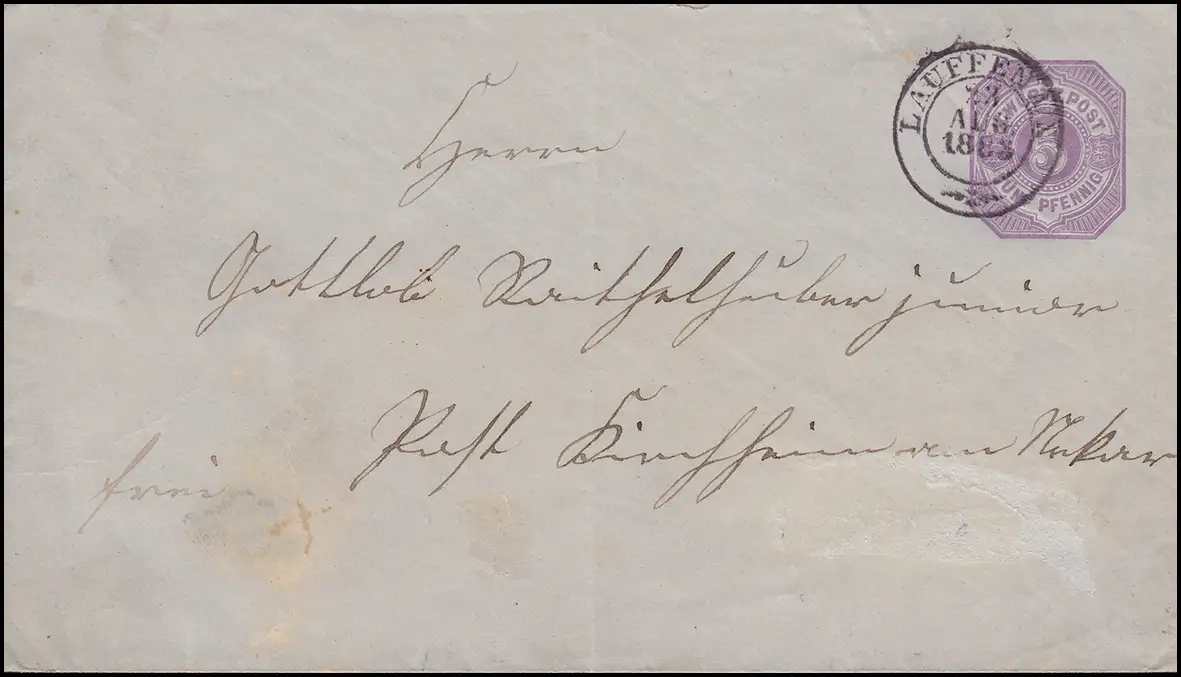 LAUFFEN
AUG
188
POST
5
FÜNF PFENNIG
Herrn
Gottlob Raithelhuber junior
Post Kirchheim am Nekar
frei